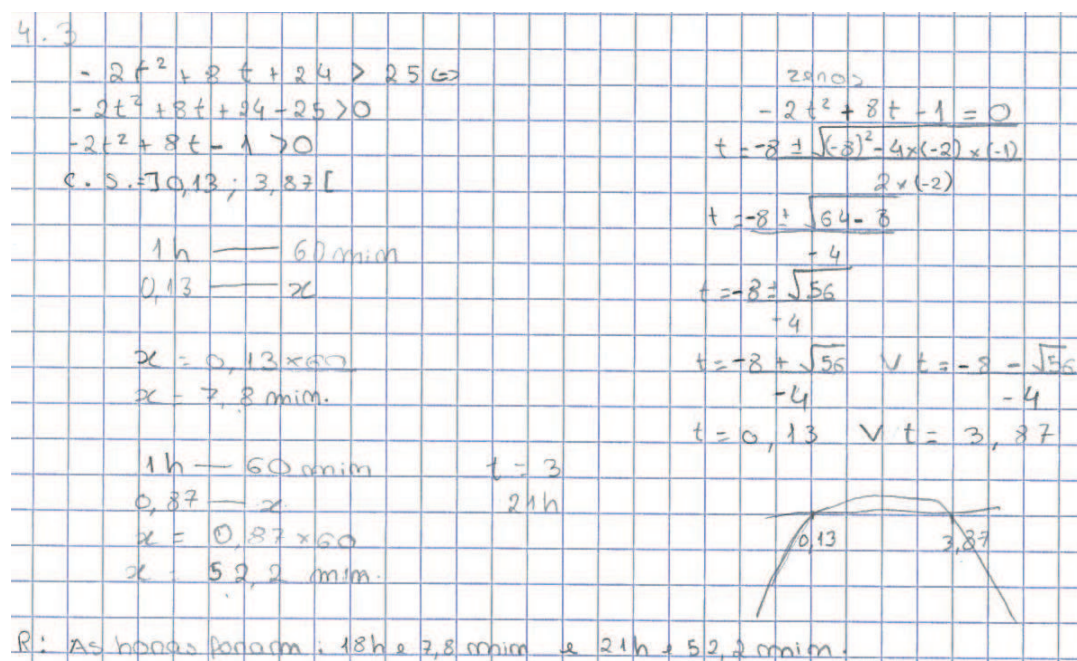 4.3
- 2t² + 8t + 24 > 25 ⇔
- 2t² + 8t + 24 - 25 > 0
- 2t² + 8t - 1 > 0
C.S.=]0,13 ; 3,87[
1h —— 60 mim
0,13 —— x
x = 0,13 × 60
x = 7,8 mim.
1h — 60 mim
0,87 — x
x = 0,87 × 60
x = 52,2 mim.
t = 3
21h
zeros
- 2t² + 8t - 1 = 0
t = -8 ± √(-8)² - 4×(-2)×(-1)
2×(-2)
t = -8 ± √64 - 8
- 4
t = -8 ± √56
- 4
t = -8 + √56 V t = -8 - √56
-4 -4
t = 0,13 V t = 3,87
0,13 3,87
R: As horas foram: 18h e 7,8 mim e 21h e 52,2 mim.